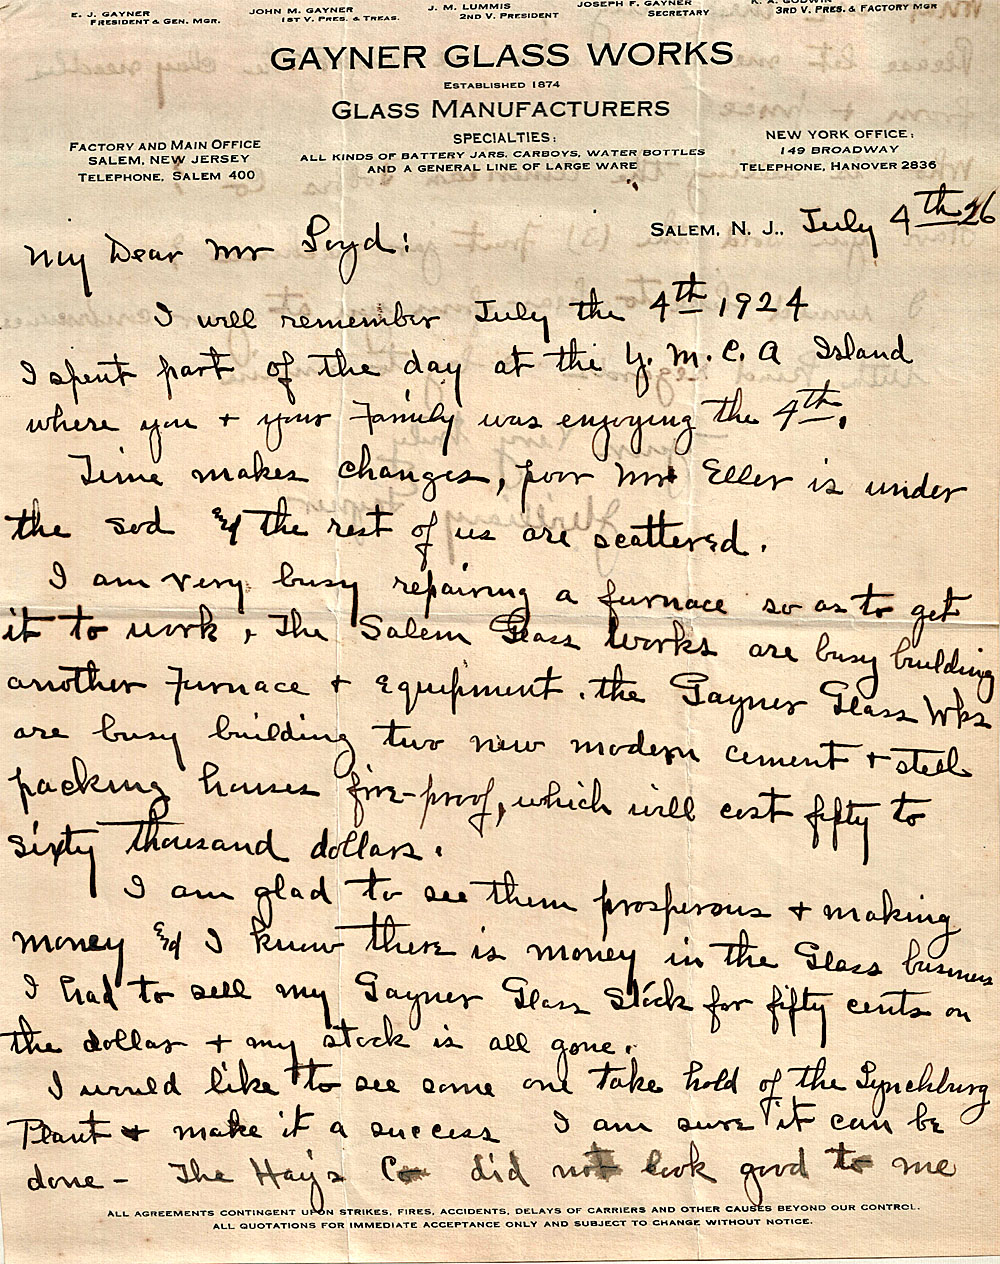 E. J. GAYNER JOHN M. GAYNER J. M. LUMMIS JOSEPH F. GAYNER K. A. GODWIN
PRESIDENT & GEN. MGR. 1ST V. PRES. & TREAS. 2ND V. PRESIDENT SECRETARY 3RD V. PRES. & FACTORY MGR
GAYNER GLASS WORKS
ESTABLISHED 1874
GLASS MANUFACTURERS
SPECIALTIES:
ALL KINDS OF BATTERY JARS, CARBOYS, WATER BOTTLES
AND A GENERAL LINE OF LARGE WARE
FACTORY AND MAIN OFFICE
SALEM, NEW JERSEY
TELEPHONE, SALEM 400
NEW YORK OFFICE:
149 BROADWAY
TELEPHONE, HANOVER 2836
SALEM, N. J., July 4th 26
My Dear Mr Loyd:
I will remember July the 4th 1924
I spent part of the day at the Y. M. C. A Island
where you + your Family was enjoying the 4th.
Time makes changes, poor Mr Eller is under
the sod & the rest of us are scattered.
I am very busy repairing a furnace so as to get
it to work, The Salem Glass Works are busy building
another Furnace + Equipment. the Gayner Glass Wks
are busy building two new modern cement + steel
packing houses fire-proof, which will cost fifty to
sixty thousand dollars.
I am glad to see them prosperous + making
money & I know there is money in the Glass business
I had to sell my Gayner Glass Stock for fifty cents on
the dollar + my stock is all gone.
I would like to see some one take hold of the Lynchburg
Plant + make it a success I am sure it can be
done - The Hay's Co did not look good to me
ALL AGREEMENTS CONTINGENT UPON STRIKES, FIRES, ACCIDENTS, DELAYS OF CARRIERS AND OTHER CAUSES BEYOND OUR CONTROL.
ALL QUOTATIONS FOR IMMEDIATE ACCEPTANCE ONLY AND SUBJECT TO CHANGE WITHOUT NOTICE.